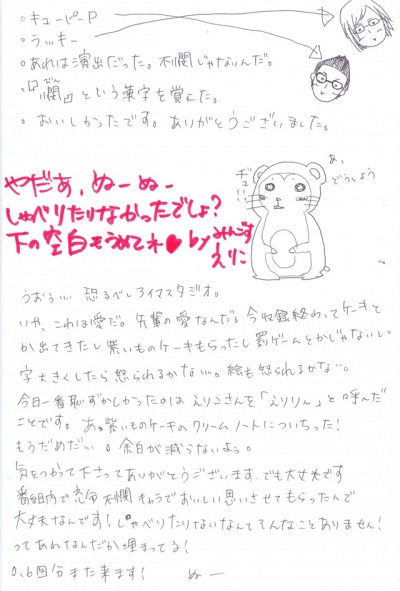 ・キューピーP
・ラッキー
・あれは演出だった。不憫じゃないんだ。
・『憫』という漢字を覚えた。
びん
・おいしかったです。ありがとうございました。
あ、
どうしよう
やだぁ、ぬーぬー
しゃべりたりなかったでしょ?
下の空白もうめてネ♥ by みんごす
えりこ
うおぅ… 恐るべしアイマスタジオ。
いや、これは愛だ。先輩の愛なんだ。今収録終わってケーキと
か出てきたし紫いものケーキもらったし罰ゲームとかじゃないし。
字大きくしたら怒られるかな…。絵も怒られるかな…。
今日一番恥ずかしかったのはえりこさんを「えりりん」と呼んだ
ことです。あ。紫いものケーキのクリームノートについちった!
もうだめだ…。余白が減らないよぅ。
気をつかって下さってありがとうございます。でも大丈夫です
番組内で充分不憫キャラでおいしい思いさせてもらったんで
大丈夫なんです!しゃべりたりないなんてそんなことありません!
ってあれなんだか埋まってる!
0.6回分また来ます! ぬー